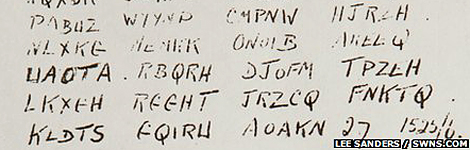 PABUZ WYYNP CMPNW HJRZH .
NLXKG MEMKK ONOIB AKEEQ
UAOTA . RBQRH DJOFM TPZEH
LKXGH RGGHT JRZCQ FNKTQ .
KLDTS GQIRU AOAKN 27 1525/6.
LEE SANDERS / SWNS.COM